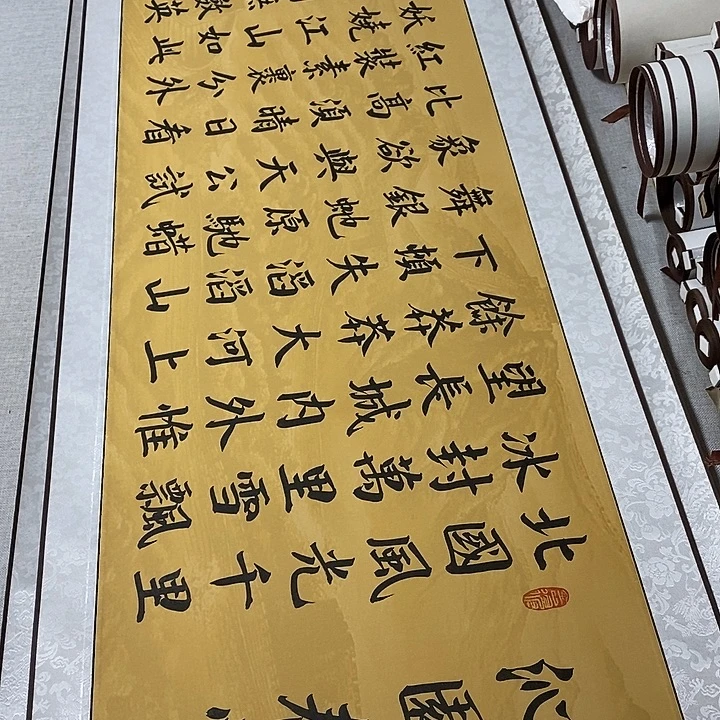 沁園春
北國風光千里
冰封萬里雪飄
望長城内外惟
餘莽莽大河上
下頓失滔滔山
舞銀蛇原馳蠟
象欲與天公試
比高須晴日看
紅裝素裹今外
妖嬈江山如此
數英